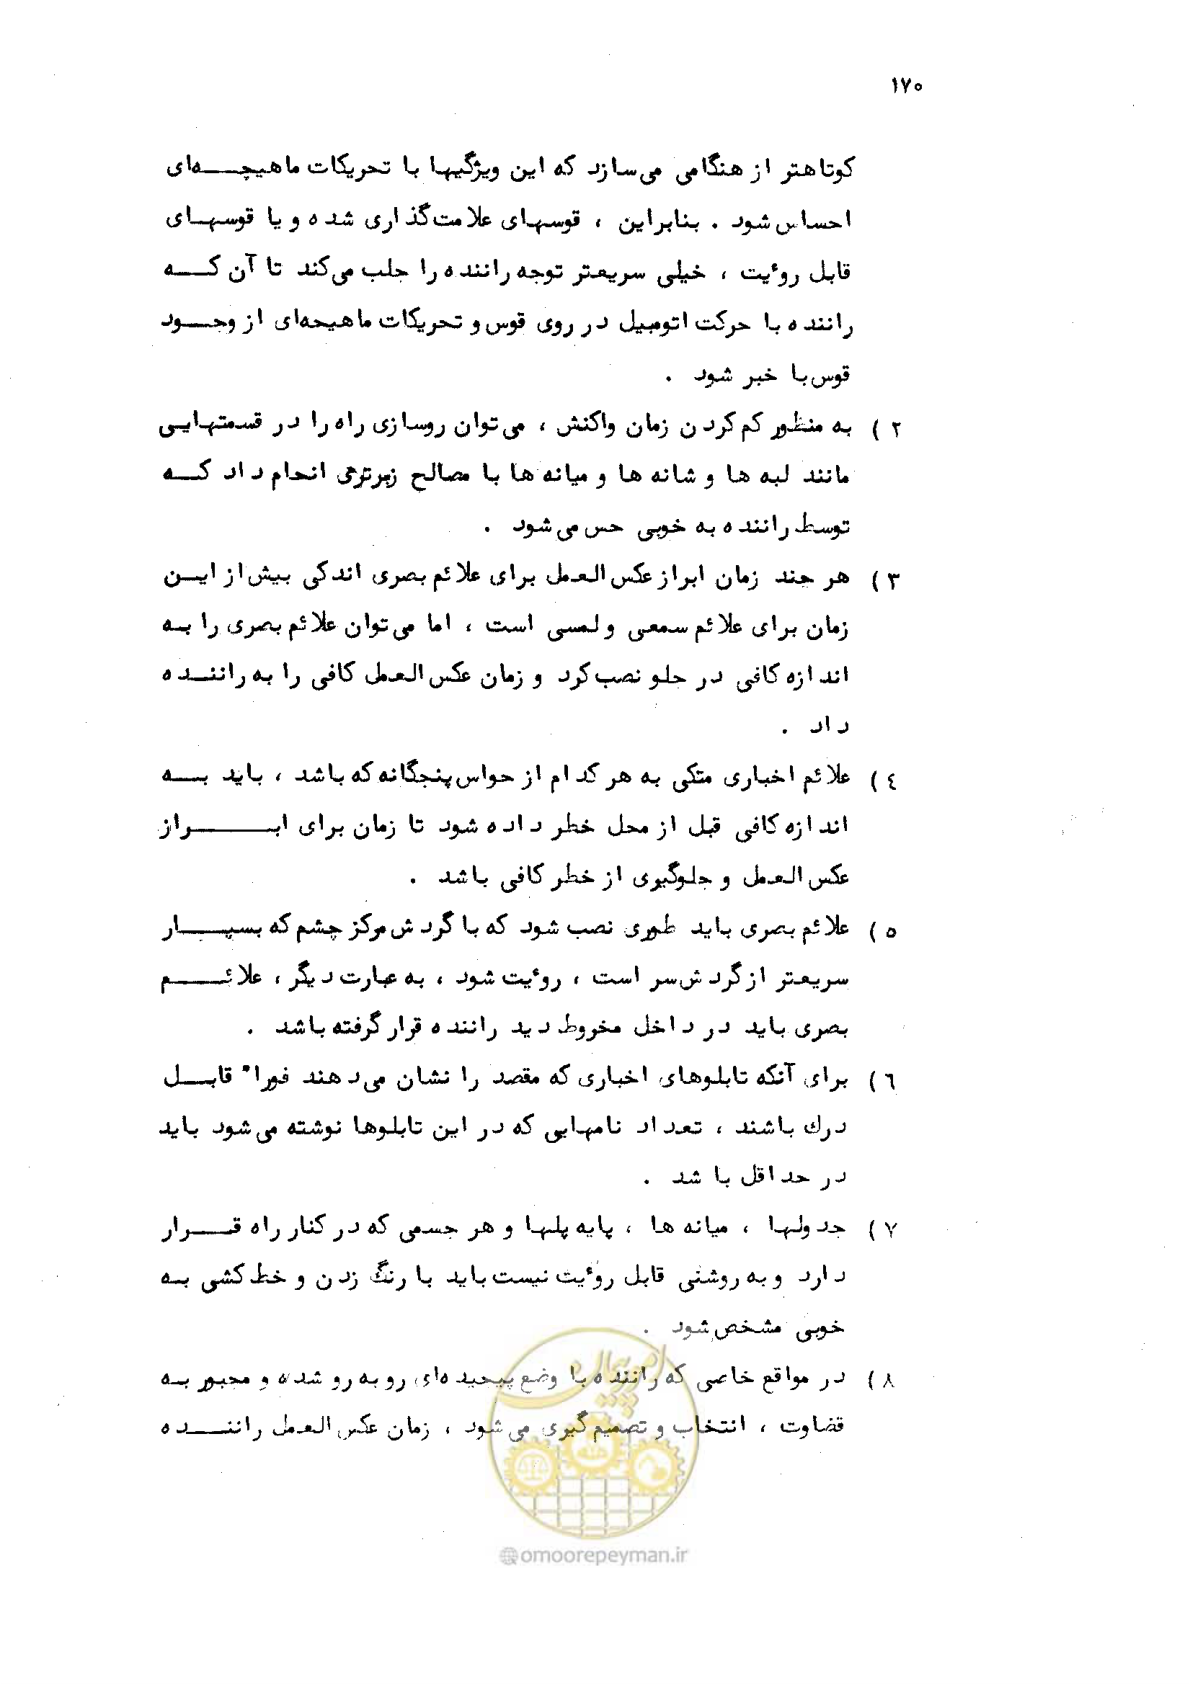 ۱۷۰
کوتاهتر از هنگامی می‌سازد که این ویژگیها با تحریکات ماهیچه‌ای
احساس شود . بنابراین ، قوسهای علامت‌گذاری شده و یا قوسهای
قابل روئیت ، خیلی سریعتر توجه راننده را جلب می‌کند تا آن که
راننده با حرکت اتومبیل در روی قوس و تحریکات ماهیچه‌ای از وجود
قوس با خبر شود .
۲ ) به منظور کم کردن زمان واکنش ، می‌توان روسازی راه را در قسمتهایی
مانند لبه ها و شانه ها و میانه ها با مصالح زبرتری انجام داد که
توسط راننده به خوبی حس می‌شود .
۳ ) هر چند زمان ابراز عکس العمل برای علائم بصری اندکی بیش از این
زمان برای علائم سمعی و لمسی است ، اما می‌توان علائم بصری را به
اندازه کافی در جلو نصب کرد و زمان عکس العمل کافی را به راننده
داد .
٤ ) علائم اخباری متکی به هر کدام از حواس پنجگانه که باشد ، باید به
اندازه کافی قبل از محل خطر داده شود تا زمان برای ابراز
عکس العمل و جلوگیری از خطر کافی باشد .
٥ ) علائم بصری باید طوری نصب شود که با گردش مرکز چشم که بسیار
سریعتر از گردش سر است ، روئیت شود ، به عبارت دیگر ، علائم
بصری باید در داخل مخروط دید راننده قرار گرفته باشد .
٦ ) برای آنکه تابلوهای اخباری که مقصد را نشان می‌دهند فورا" قابل
درك باشند ، تعداد نامهایی که در این تابلوها نوشته می‌شود باید
در حداقل با شد .
۷ ) جدولها ، میانه ها ، پایه پلها و هر جسمی که در کنار راه قرار
دارد و به روشنی قابل روئیت نیست باید با رنگ زدن و خط کشی به
خوبی مشخص شود .
۸ ) در مواقع خاصی که راننده با وضع پیچیده‌ای روبه رو شده و مجبور به
قضاوت ، انتخاب و تصمیم گیری می‌شود ، زمان عکس العمل راننده
امور پیمان
@omoorepeyman.ir